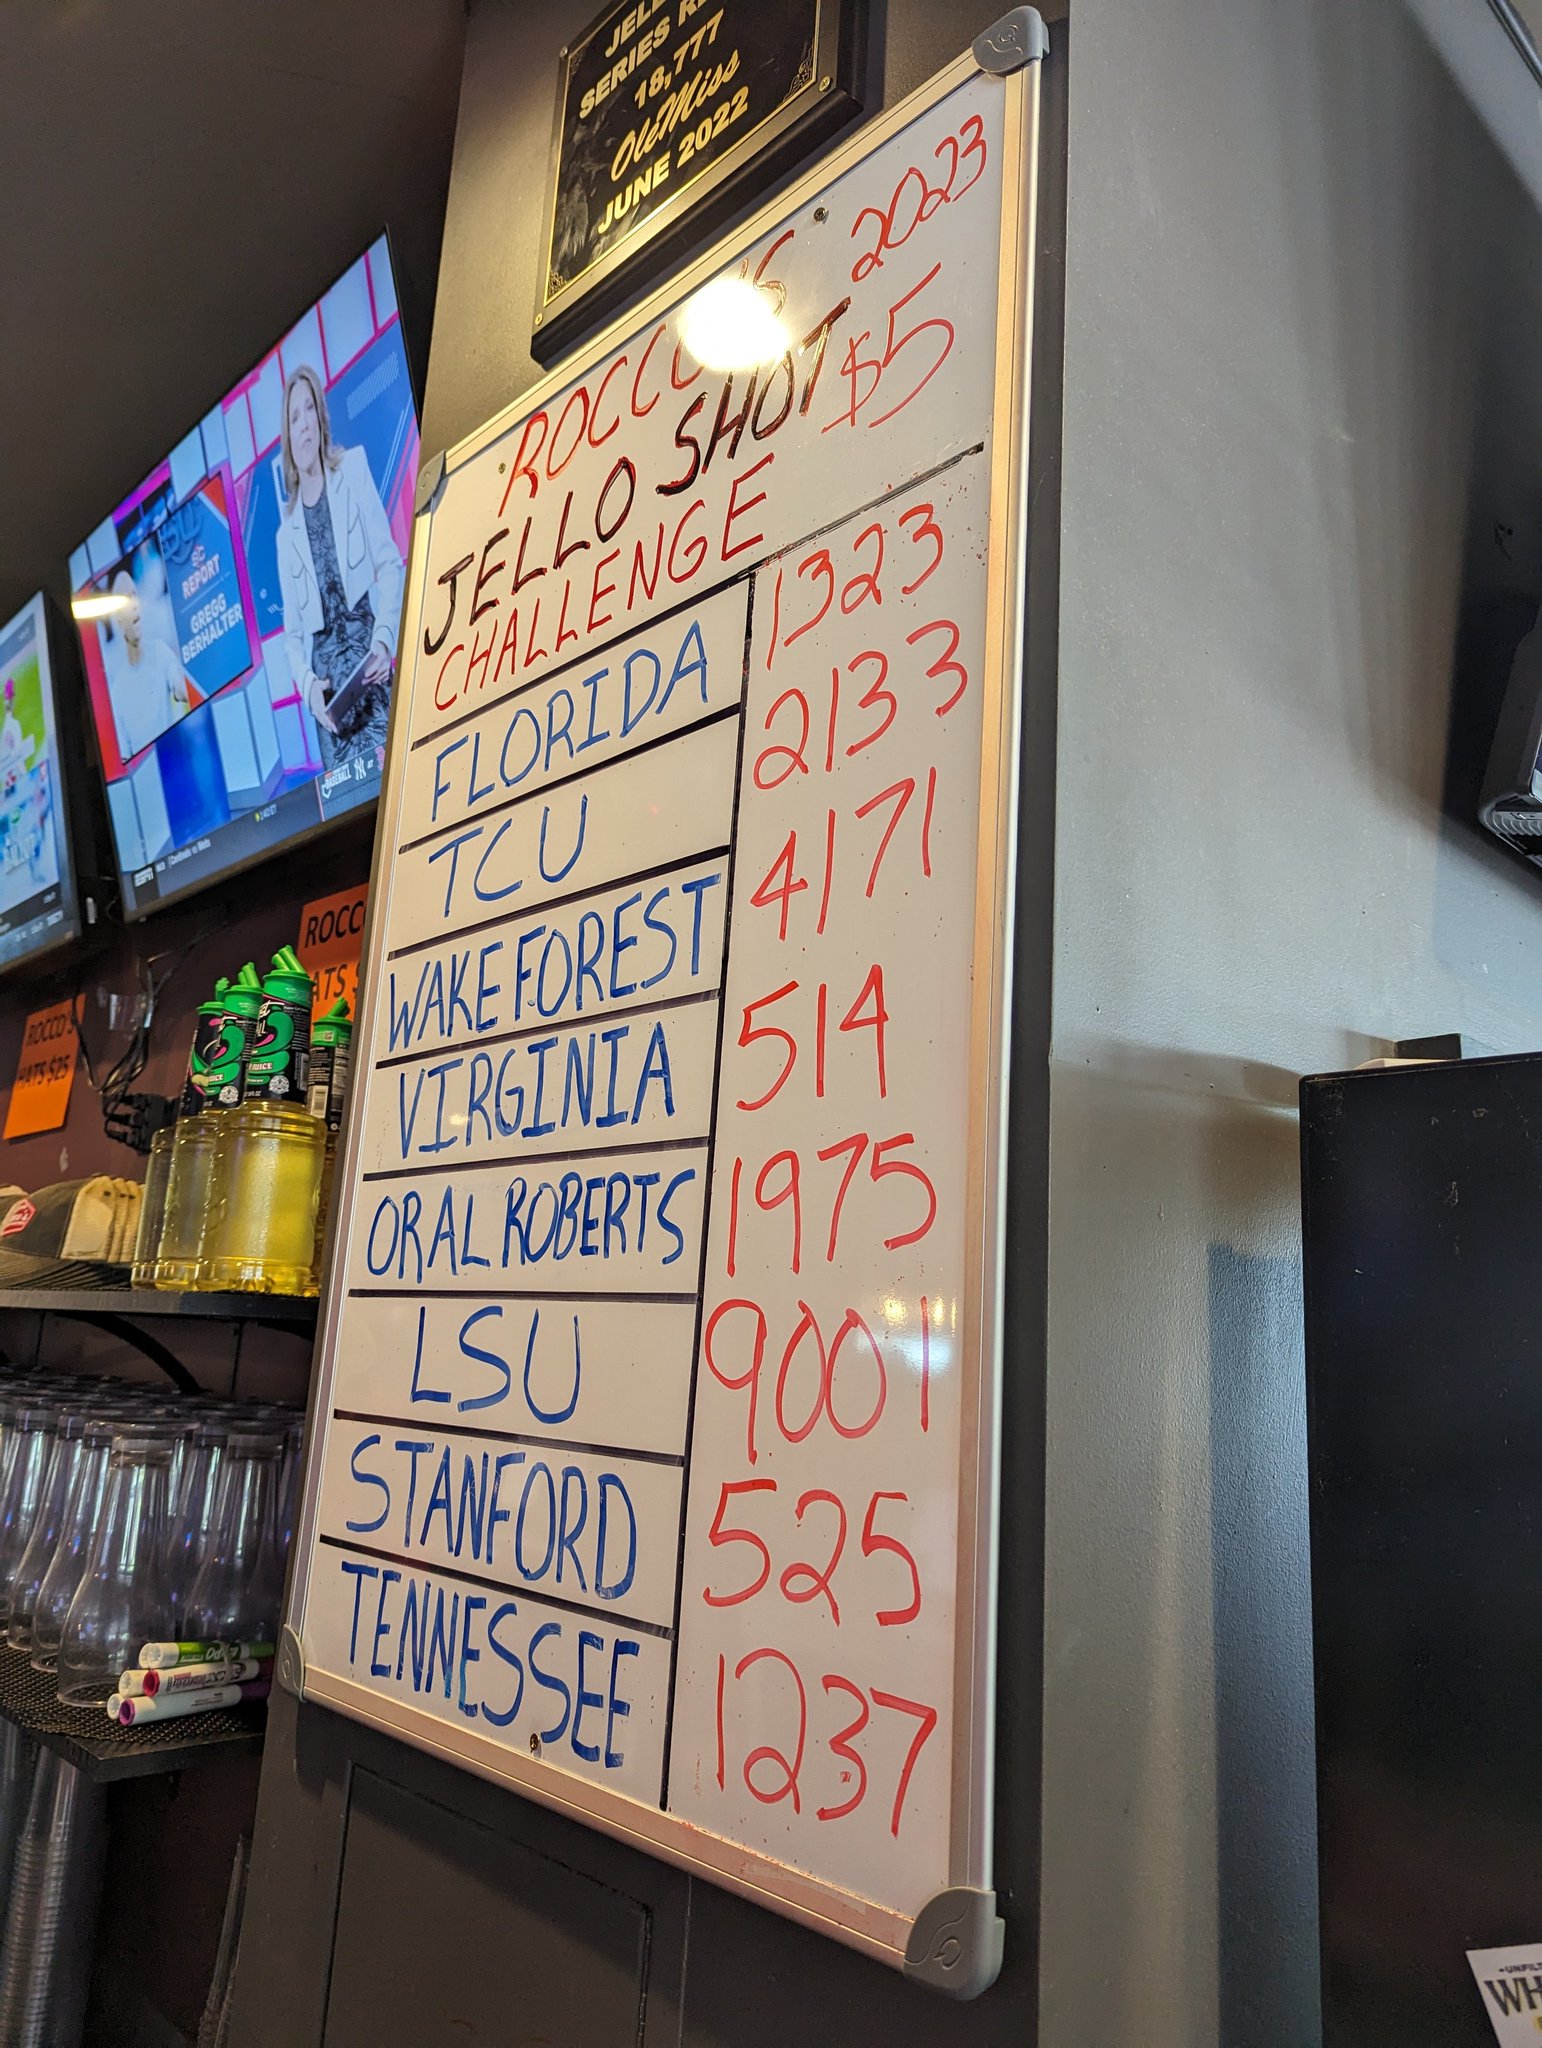 SERIES
18,777
Ole Miss
JUNE 2022
2023
JELLO SHOT $5
CHALLENGE
FLORIDA 1323
TCU 2133
WAKE FOREST 4171
VIRGINIA 514
ORAL ROBERTS 1975
LSU 9001
STANFORD 525
TENNESSEE 1237
REPORT
GREGG
BERHALTER
BASEBALL
Cardinals vs Mets
ROCCO'S
HATS $25
JUICE
EXPO